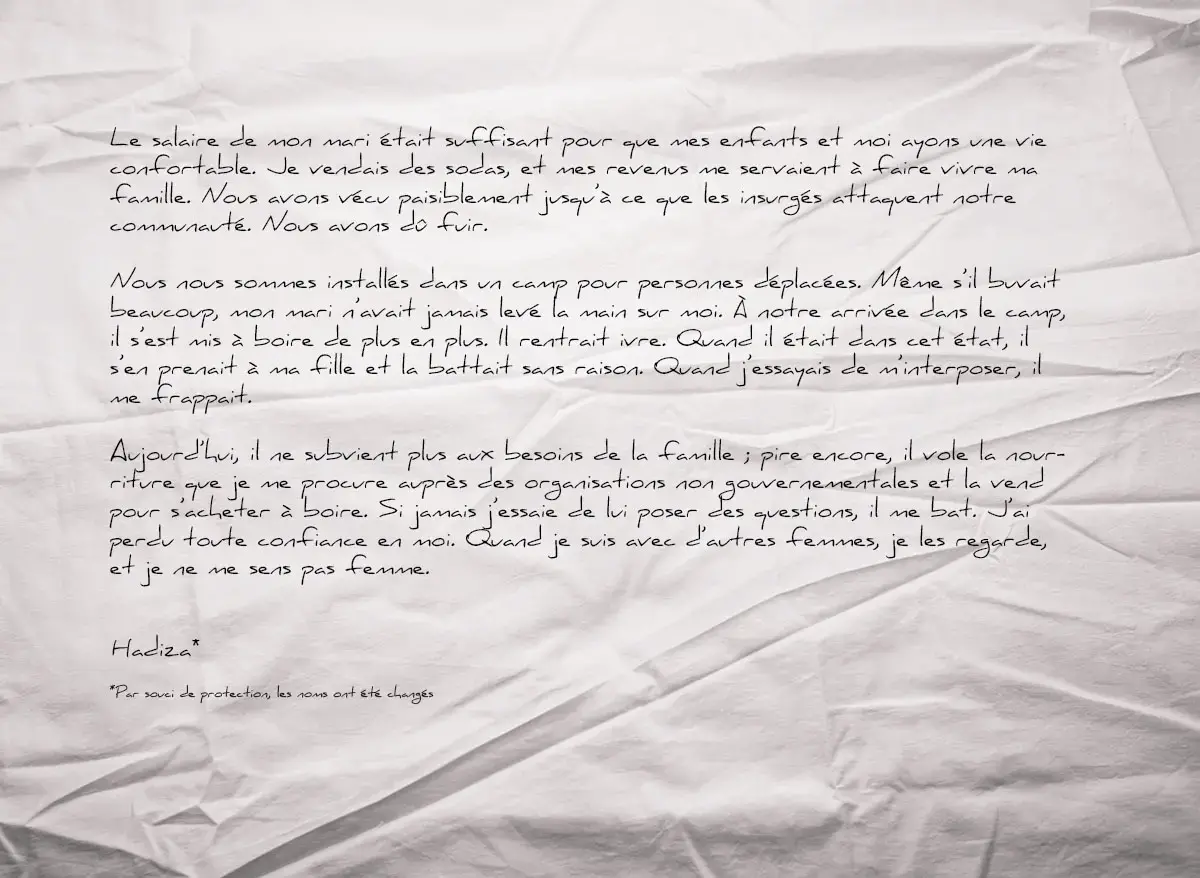 Le salaire de mon mari était suffisant pour que mes enfants et moi ayons une vie
confortable. Je vendais des sodas, et mes revenus me servaient à faire vivre ma
famille. Nous avons vécu paisiblement jusqu'à ce que les insurgés attaquent notre
communauté. Nous avons dû fuir.
Nous nous sommes installés dans un camp pour personnes déplacées. Même s'il buvait
beaucoup, mon mari n'avait jamais levé la main sur moi. À notre arrivée dans le camp,
il s'est mis à boire de plus en plus. Il rentrait ivre. Quand il était dans cet état, il
s'en prenait à ma fille et la battait sans raison. Quand j'essayais de m'interposer, il
me frappait.
Aujourd'hui, il ne subvient plus aux besoins de la famille ; pire encore, il vole la nour-
riture que je me procure auprès des organisations non gouvernementales et la vend
pour s'acheter à boire. Si jamais j'essaie de lui poser des questions, il me bat. J'ai
perdu toute confiance en moi. Quand je suis avec d'autres femmes, je les regarde,
et je ne me sens pas femme.
Hadiza*
*Par souci de protection, les noms ont été changés